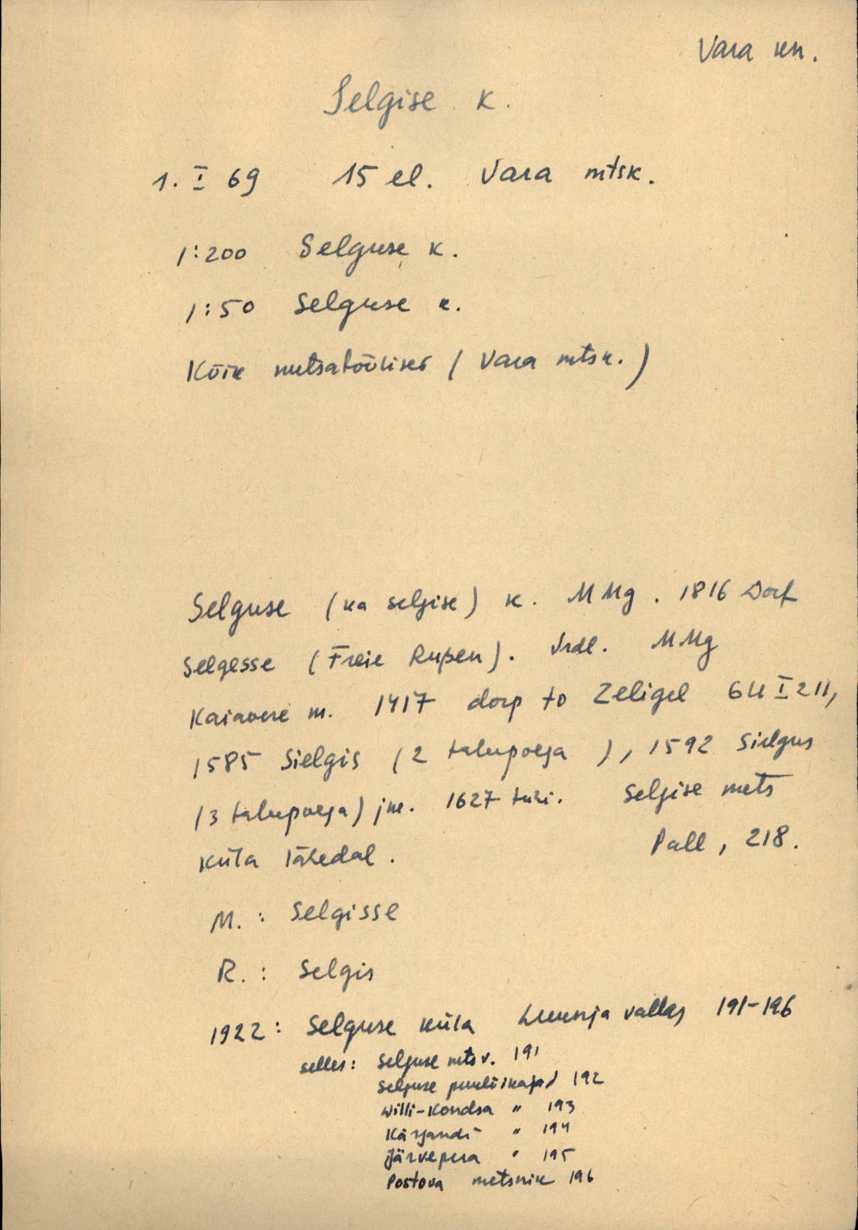 Vara kn.
Selgise k.
1. I 69 15 el. Vara mtsk.
1:200 Selguse k.
1:50 Selguse k.
Kõik metsatöölised (Vara mtsk.)
Selguse (ka selgise) k. MMg. 1816 Dorf
Selgesse (Freie Rupen). Vrdl. MMg
Kaiavere m. 1417 dorp to Zeligel GU I 211,
1585 Sielgis (2 talupoega), 1592 Sielgus
(3 talupoega) jne. 1627 tühi. Selgise mets
küla lähedal. Pall, 218.
M.: Selgisse
R.: Selgis
1922: Selguse küla Luunja vallas 191-196
selles: Selguse mtsv. 191
Selguse puulõikajad 192
Willi-Kondsa " 193
Kärjandi " 194
Järvepera " 195
Postova metsnik 196